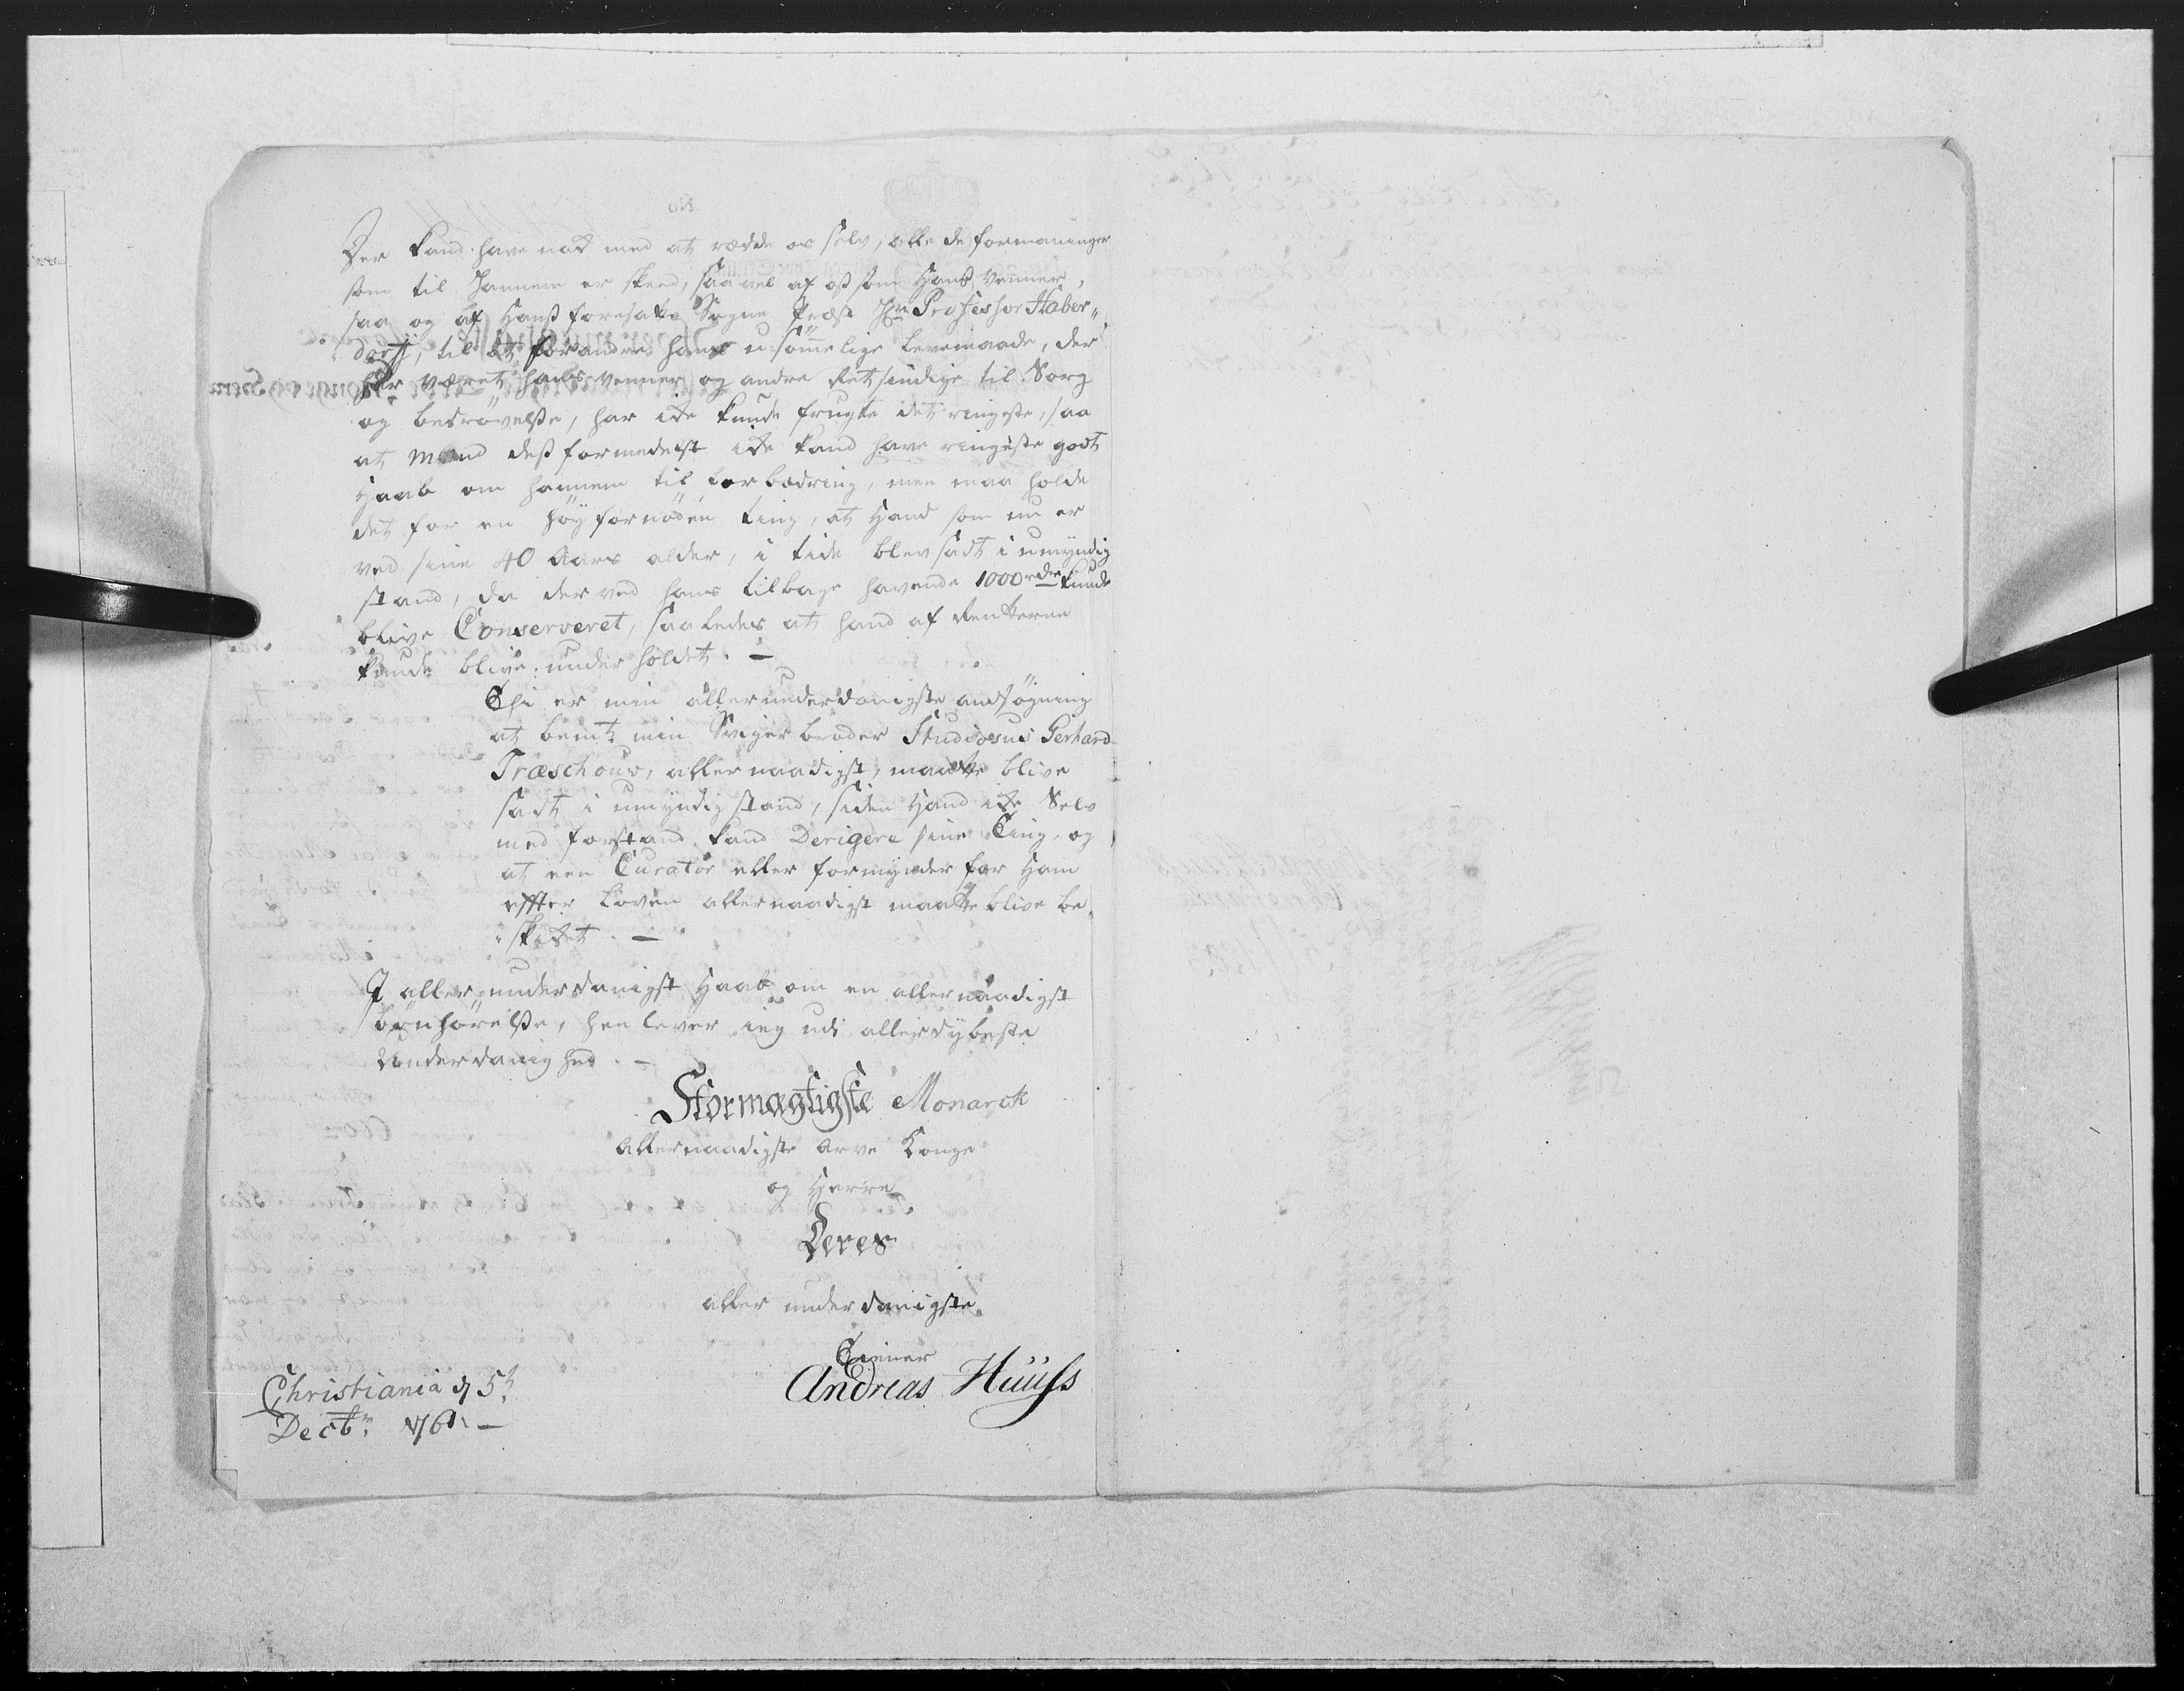 Der kand have nok med at rædde os selv, alle de formaninger
som til hannem er skeed, saavel af oss som Hans Venner,
saa og af Hans foresatte Sogne Præst Hr. Professor Haber„
dorff, til at forandre hans u-sømmelige Levemaade, der
har været hans Venner og andre Retsindige til Sorg
og bedrøvelse, har icke kunde frugte det ringeste, saa
at mand dessformedelst icke kand have ringeste godt
Haab om hannem til forbædring, men maa holde
det for en høyfornøden Ting, at Hand som nu er
ved sine 40 Aars alder, i tide blev sadt i umyndig
stand, da der ved hans tilbage havende 1000 rdr kunde
blive Conserveret, saaledes at hand af Renterne
kunde blive under holdet. —
Thi er min allerunderdanigste andsøgning
at bemt: min Svigerbroder Studiosus Gerhard
Træschouw, allernaadigst, maatte blive
sadt i umyndig stand, siden Hand icke Selv
med forstand kand Derigere sine Ting, og
at een Curator eller formynder for Ham
effter Loven allernaadigst maatte blive be„
skicket. —
I aller„underdanigst Haab om en allernaadigst
bønhørelse, henlever ieg udi allerdybeste
Underdanighed. —
Stormægtigste Monarck
Allernaadigste Arve Konge
og Herre
Deres
aller underdanigste
Tiener
Andreas Huuss
Christiania d 5t
Dectr: 1761. —